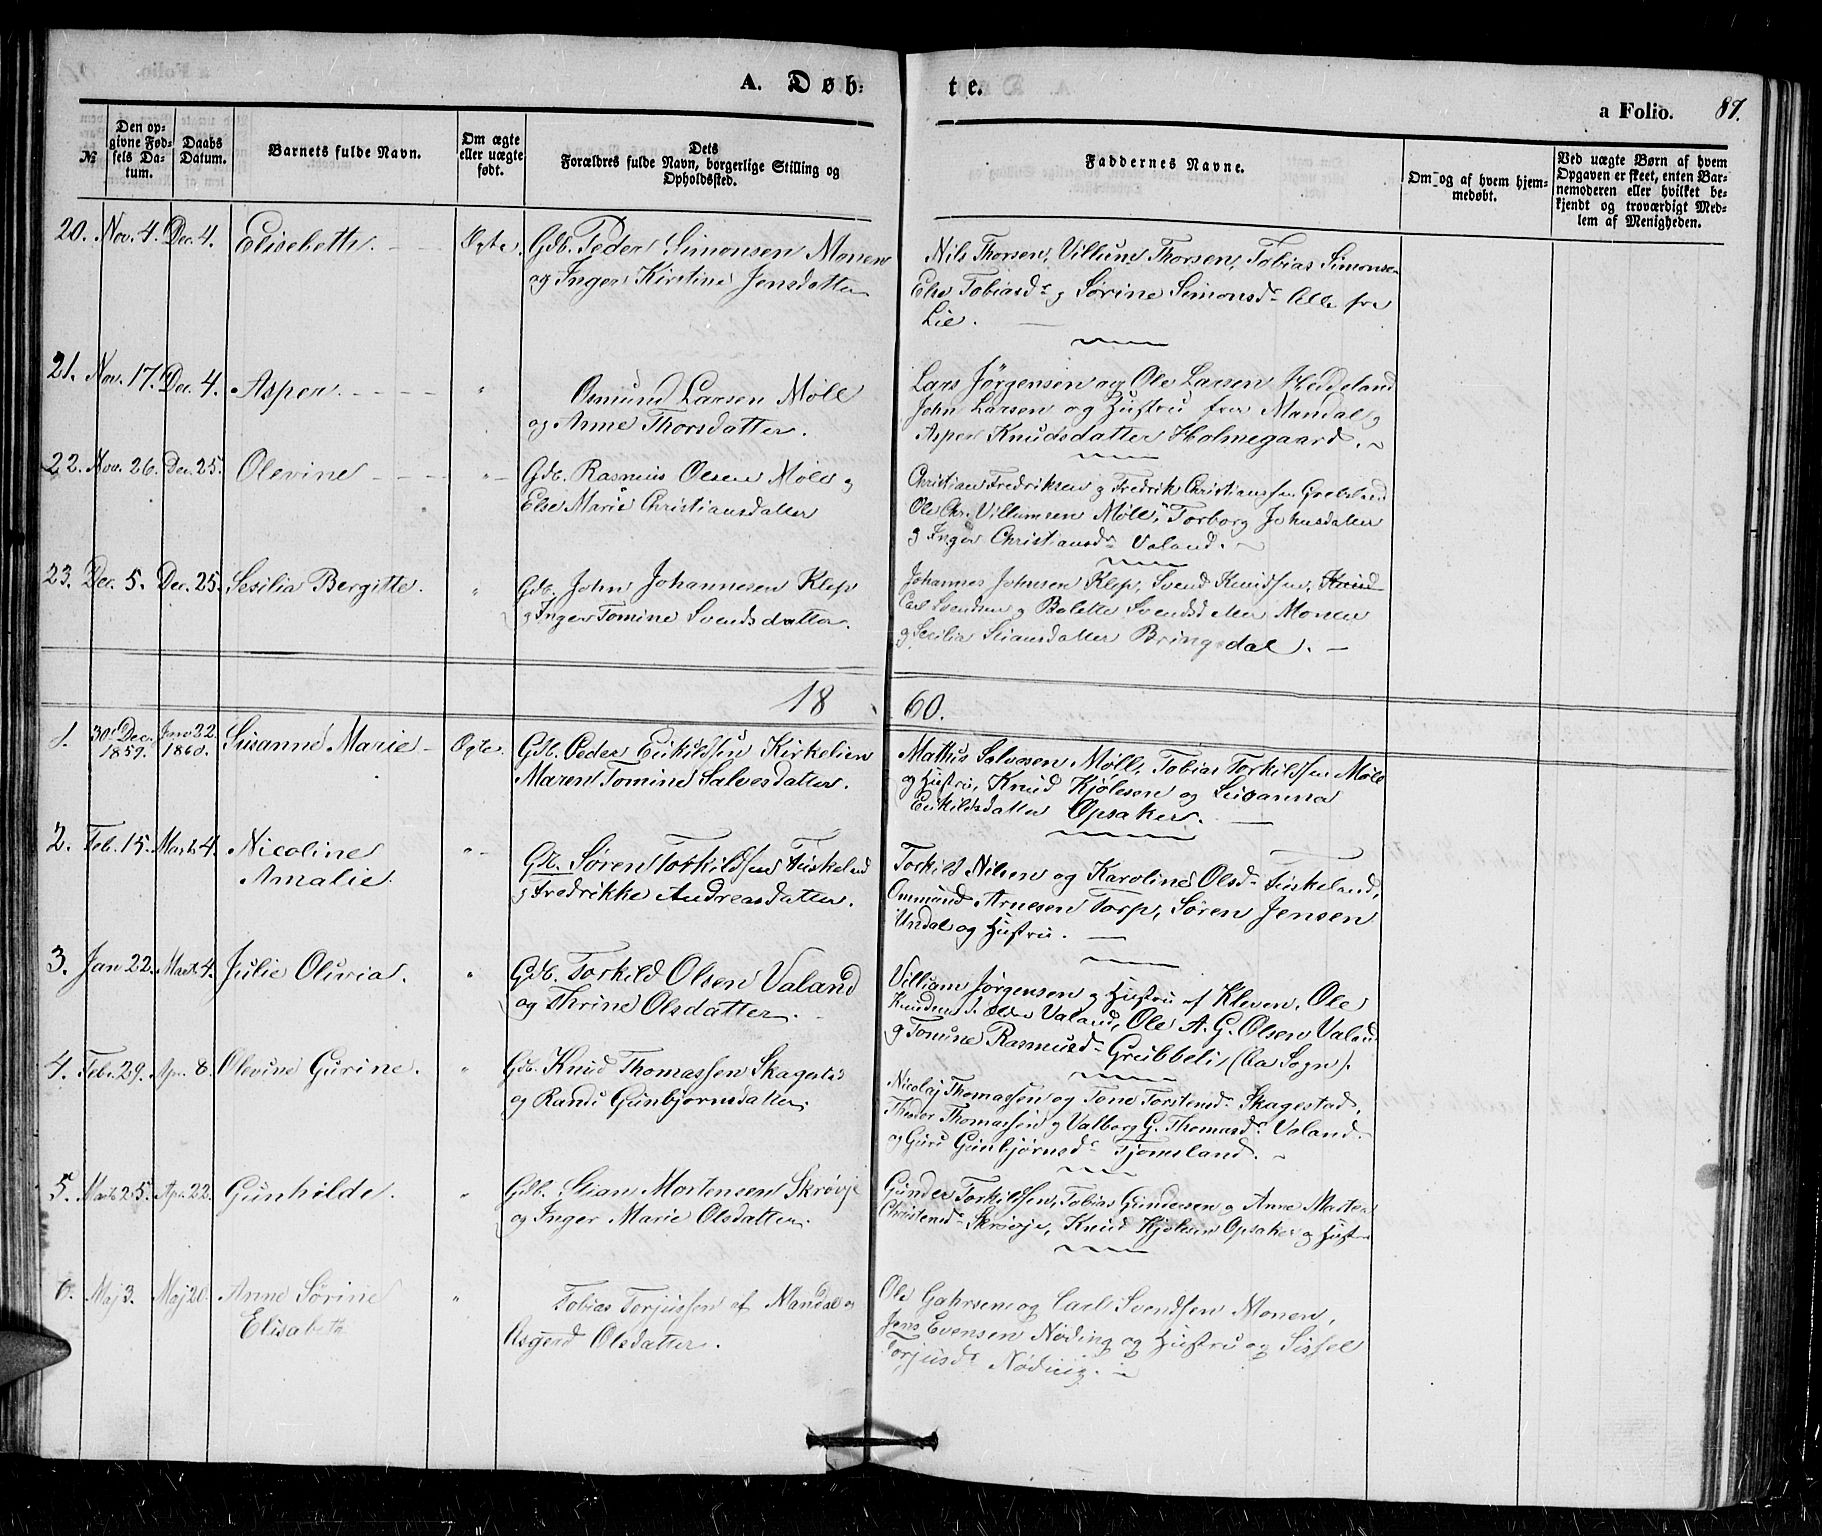 A. Døb: te.
a Folio. 87.
№
Den op-
givne Fød-
sels Da-
tum.
Daabs
Datum.
Barnets fulde Navn.
Om ægte
eller uægte
født.
Dets
Forældres fulde Navn, borgerlige Stilling og
Opholdssted.
Faddernes Navne.
Om og af hvem hjem-
medøbt.
Ved uægte Børn af hvem
Opgaven er skeet, enten Bar-
nemoderen eller hvilket be-
kjendt og troværdigt Med-
lem af Menigheden.
20. Nov. 4. Dec. 4. Elisebeth. Ægte. Gdb. Peder Simonsen Monen
og Inger Kirstine Jensdatter
Nils Thorsen, Villum Thorsen, Tobias Simonsen
Else Tobiasdr og Sørine Simonsdr Alle fra
Lie.
21. Nov. 17. Dec. 4. Asper. " Osmund Larsen Møll
og Anne Thorsdatter.
Lars Jørgensen og Ole Larsen Heddeland
John Larsen og Hustru fra Mandal og
Asper Knudsdatter Holmegaard.
22. Nov. 26. Dec. 25. Olevine " Gdb. Rasmus Olsen Møll og
Else Marie Christiansdatter
Christian Fredriksen og Fredrik Christianssen Grebeland
Ole Chr. Villumsen Møll, Torborg Johnsdatter
og Inger Christiansdr Valand.
23. Dec. 5. Dec. 25. Sesilia Bergitte. " Gdb. John Johannesen Klep
og Inger Tomine Svendsdatter.
Johannes Johnsen Klep, Svend Knudsen, Knud
Carl Svendsen og Bolette Svendsdatter Monen
og Secilia Stiansdatter Bringsdal.
1860.
1. 30' Dec. 1859. Jan 22. 1860. Susanne Marie Ægte. Gdb. Peder Enkildsen Kirkelien
Maren Tomine Salvesdatter.
Mathis Salvesen Møll, Tobias Torkildsen Møll
og Hustru, Knud Kjølesen og Susanna
Enkildsdatter Opsaker.
2. Feb. 15. Marts 4. Nicoline
Amalie. " Gdb. Søren Torkildsen Finkeland
og Fredrikke Andreasdatter.
Torkild Nilsen og Karoline Olsdr Finkeland,
Ommund Arnesen Torp, Søren Jensen
Undal og Hustru.
3. Jan 22. Marts 4. Julie Olivia. " Gdb. Torkild Olsen Valand
og Thrine Olsdatter.
Villium Jørgensen og Hustru af Kleven, Ole
Knudsen Valand, Ole A. G. Olsen Valand
og Tomine Rasmusdr Grubbeli, (Sogn).
4. Febr. 29. Apr. 8. Olevine Gurine. " Gdb. Knud Thomassen Skagestad
og Randi Gunbjørnsdatter.
Nicolaj Thomassen og Tone Torstensdr Skagestad,
Theodor Thomassen og Valborg G. Thomasdr Valand.
og Guri Gunbjørnsdr Tjomsland.
5. Marts 25. Apr. 22. Gunhilde. " Gdb. Stian Mortensen Skrøvje
og Inger Marie Olsdatter.
Gunder Torkildsen, Tobias Gundersen og Anne Marten
Christensdr Skrøvje, Knud Kjølesen Opsaker og Hustru
6. Maj 3. Maj 20. Anne Sørine
Elisabeth " Tobias Torjussen af Mandal og
Asgerd Olsdatter.
Ole Gahrsen og Carl Svendsen Monen,
Jens Evensen Nøding og Hustru og Sissel
Torjusdr Nøding.